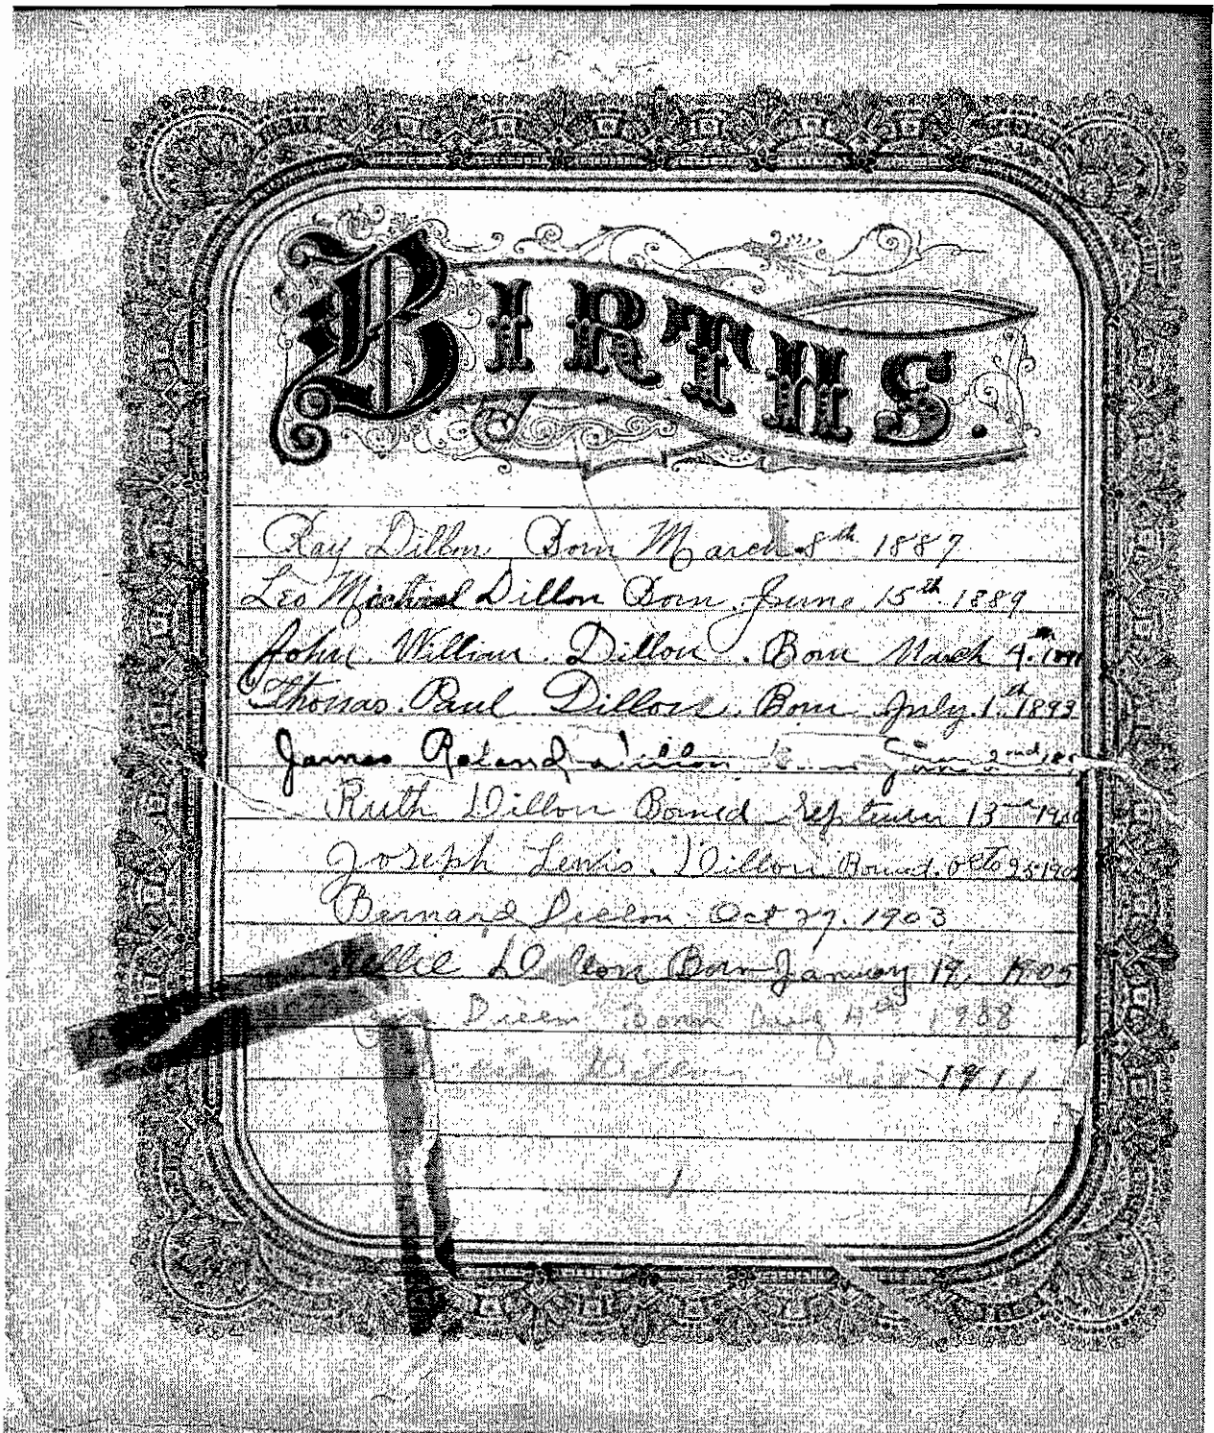 BIRTHS.
Ray Dillon Born March 8th 1887
Leo Michael Dillon Born June 15th 1889
John. William. Dillon. Born March 4.th
Thomas. Paul Dillon. Born July. 1.th 1893
James Roland Dillon June 2nd
Ruth Dillon Borned September 13
Joseph Lewis. Dillon Borned. Octo 25
Barnard Dillon Oct 27. 1903
Dillon Born January 19, 1905
Dillon Born Aug 4th 1908
Dillon 1911